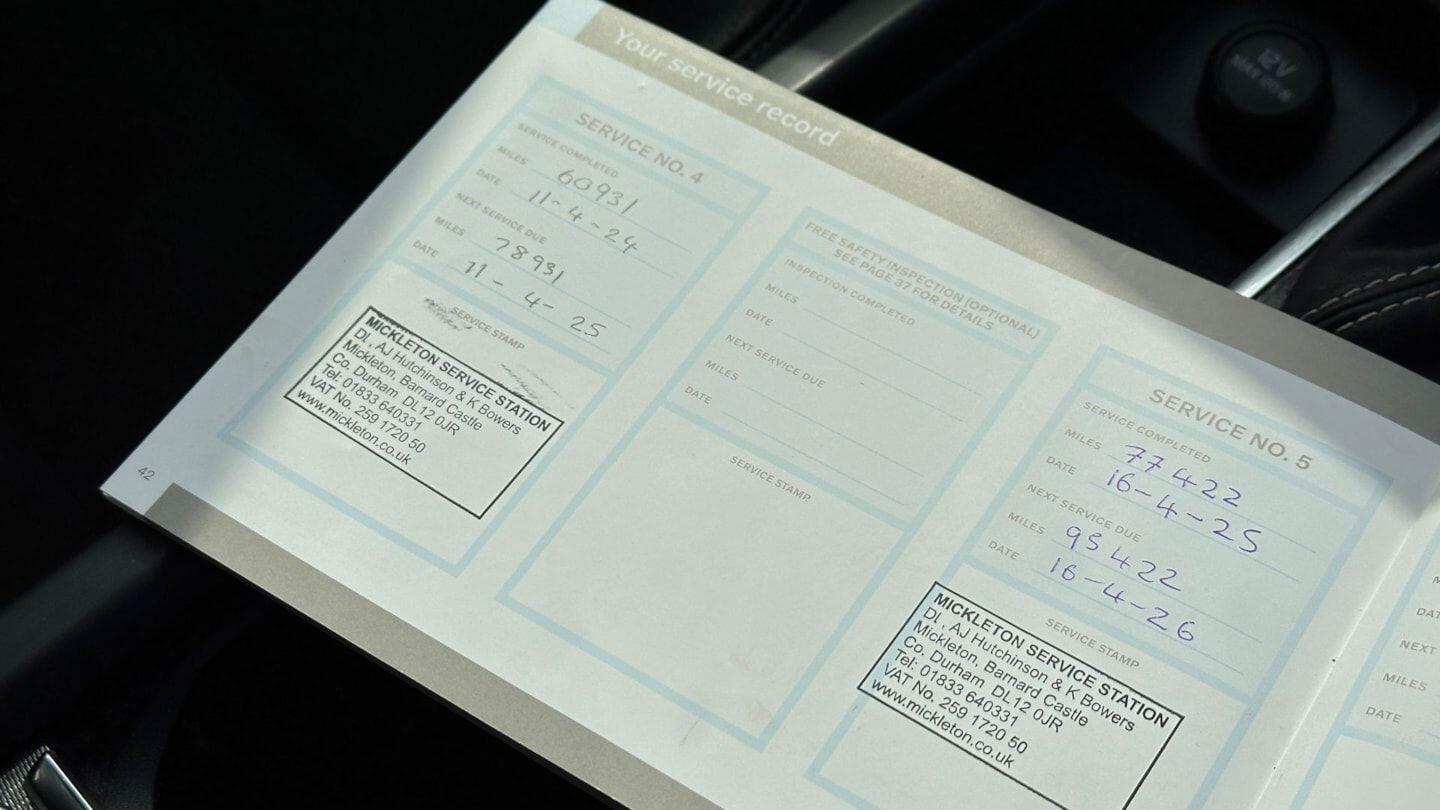 Your service record
SERVICE NO. 4
SERVICE COMPLETED
MILES 60931
DATE 11-4-24
NEXT SERVICE DUE
MILES 78931
DATE 11-4-25
SERVICE STAMP
MICKLETON SERVICE STATION
DI, AJ Hutchinson & K Bowers
Mickleton, Barnard Castle
Co. Durham DL12 0JR
Tel: 01833 640331
VAT No. 259 1720 50
www.mickleton.co.uk
42
FREE SAFETY INSPECTION (OPTIONAL)
SEE PAGE 37 FOR DETAILS
INSPECTION COMPLETED
MILES
DATE
NEXT SERVICE DUE
MILES
DATE
SERVICE STAMP
SERVICE NO. 5
SERVICE COMPLETED
MILES 77422
DATE 16-4-25
NEXT SERVICE DUE
MILES 95422
DATE 16-4-26
SERVICE STAMP
MICKLETON SERVICE STATION
DI, AJ Hutchinson & K Bowers
Mickleton, Barnard Castle
Co. Durham DL12 0JR
Tel: 01833 640331
VAT No. 259 1720 50
www.mickleton.co.uk
DAT
NEXT
MILES
DATE
12V